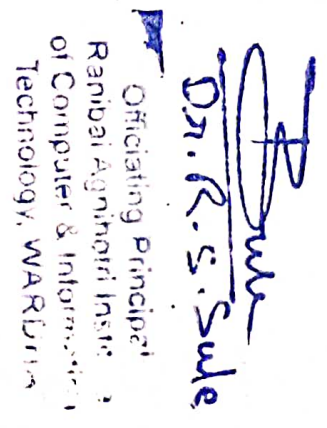 Sule
Dr. R. S. Sule
Officiating Principal
Ranibai Agnihotri Inst
of Computer & Informatic
Technology, WARDHA